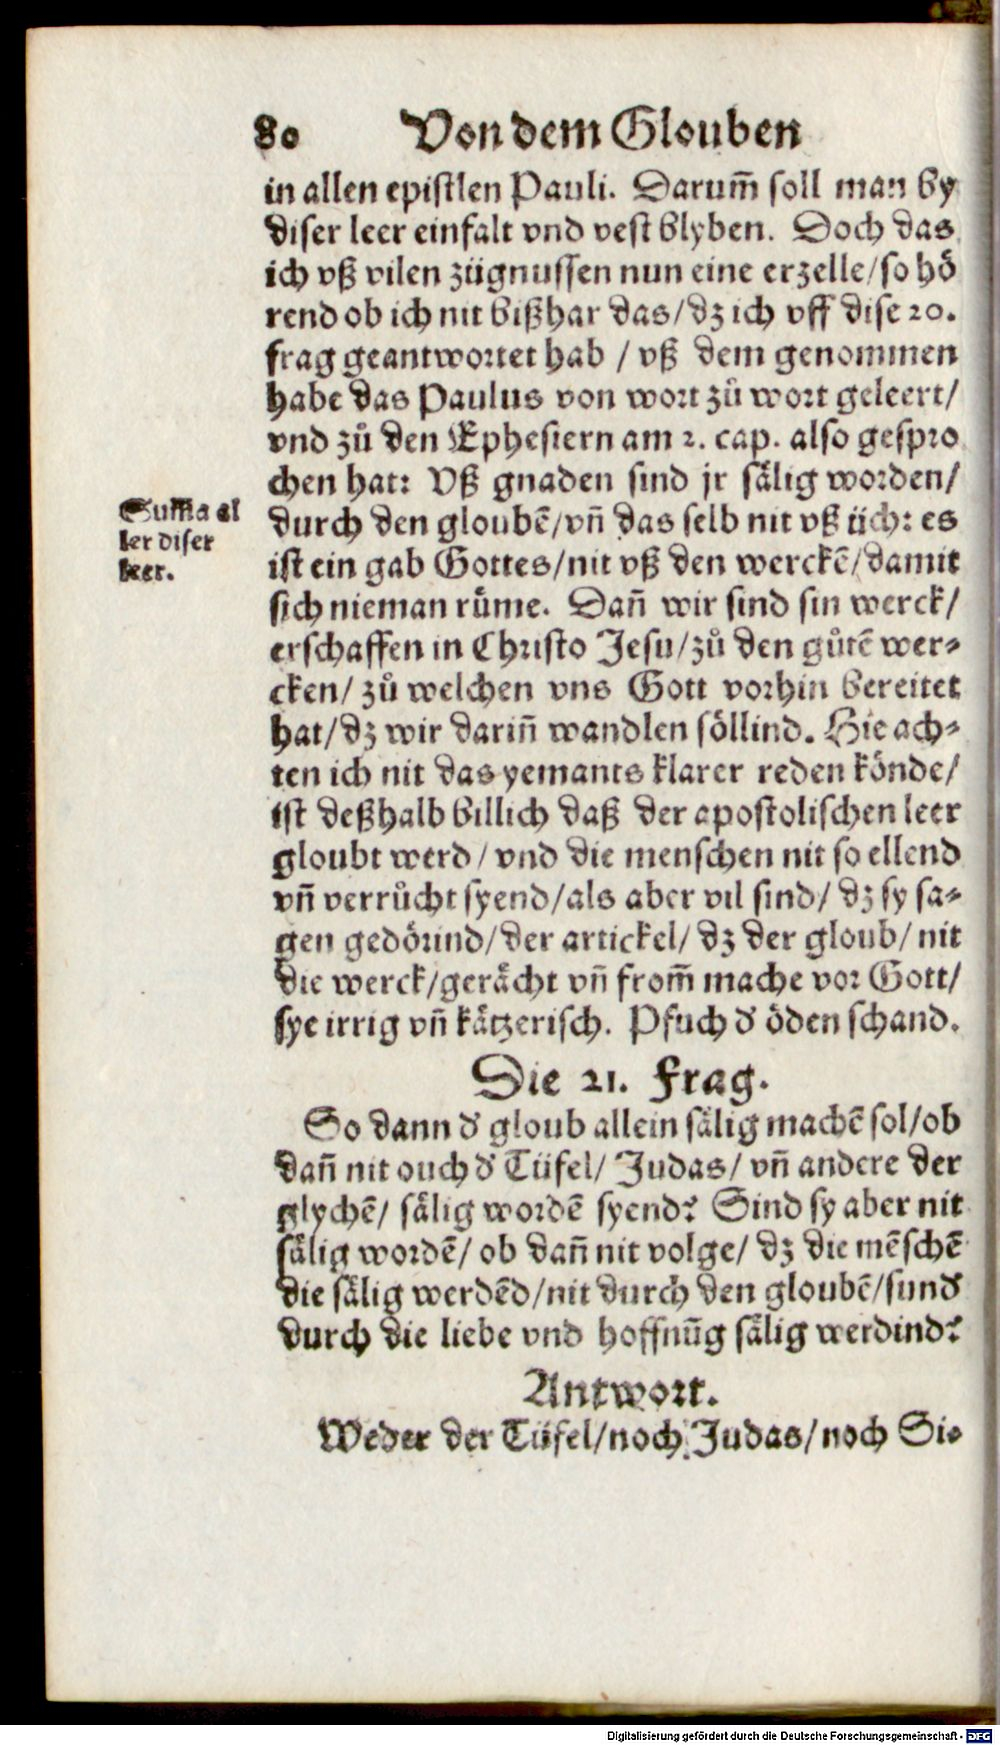 80 Von dem Glouben
in allen epistlen Pauli. Darum̃ soll man by
diser leer einfalt vnd vest blyben. Doch das
ich vß vilen zügnussen nun eine erzelle/so hö
rend ob ich nit bißhar das/dz ich vff dise 20.
frag geantwortet hab / vß dem genommen
habe das Paulus von wort zů wort geleert/
vnd zů den Ephesiern am 2. cap. also gespro
chen hat: Vß gnaden sind jr sälig worden/
Sum̃a al
ler diser
leer.
durch den gloubẽ/vñ das selb nit vß üch: es
ist ein gab Gottes/nit vß den werckẽ/damit
sich nieman rüme. Dañ wir sind sin werck/
erschaffen in Christo Jesu/zů den gůtẽ wer-
cken/ zů welchen vns Gott vorhin bereitet
hat/dz wir dariñ wandlen söllind. Hie ach-
ten ich nit das yemants klarer reden könde/
ist deßhalb billich daß der apostolischen leer
gloubt werd / vnd die menschen nit so ellend
vñ verrůcht syend/als aber vil sind/ dz sy sa-
gen gedörind/der artickel/ dz der gloub/ nit
die werck/gerächt vñ from̃ mache vor Gott/
sye irrig vñ kätzerisch. Pfuch d' öden schand.
Die 21. Frag.
So dann d' gloub allein sälig machẽ sol/ob
dañ nit ouch d' Tüfel/ Judas/ vñ andere der
glychẽ/ sälig wordẽ syend? Sind sy aber nit
sälig wordẽ/ ob dañ nit volge/ dz die mẽschẽ
die sälig werdẽd/nit durch den gloubẽ/sund'
durch die liebe vnd hoffnũg sälig werdind?
Antwort.
Weder der Tüfel/noch Judas/noch Si-
Digitalisierung gefördert durch die Deutsche Forschungsgemeinschaft - DFG